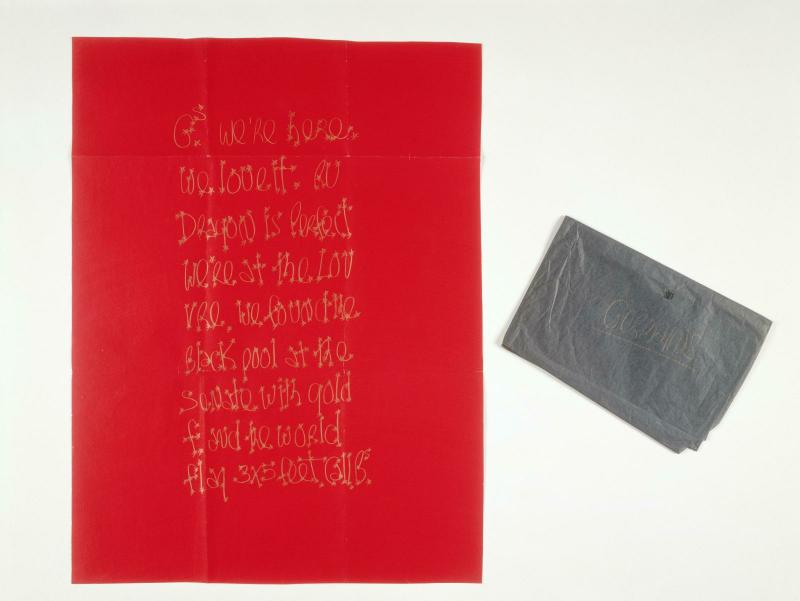 Gs. we're here.
we love it. RU
Dragon is perfect
we're at the LOU
VRE, we found the
Black pool at the
Senate with gold
f and the world
flag 3x5 feet, Call Bs